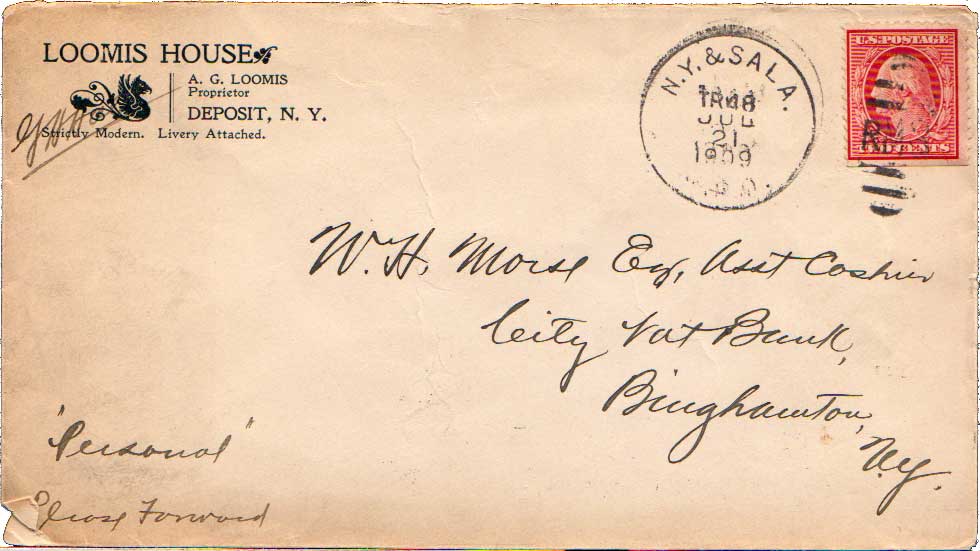 LOOMIS HOUSE
A. G. LOOMIS
Proprietor
DEPOSIT, N. Y.
Strictly Modern. Livery Attached.
N.Y. & SALA.
TR 48
JUL
21
1909
U.S. POSTAGE
CENTS
W. H. Morse Esq, Asst Cashier
City Nat Bank,
Binghamton,
N.Y.
"Personal"
Please Forward